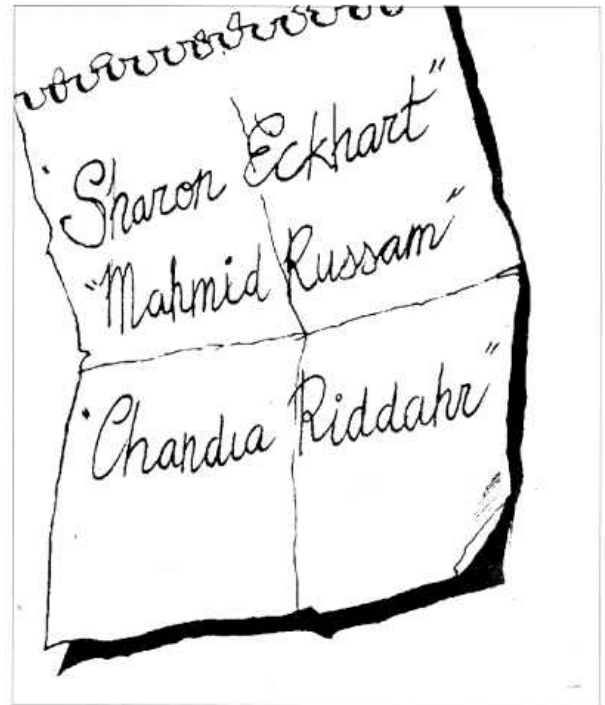 "Sharon Eckhart"
"Mahmid Russam"
"Chandia Riddahr"